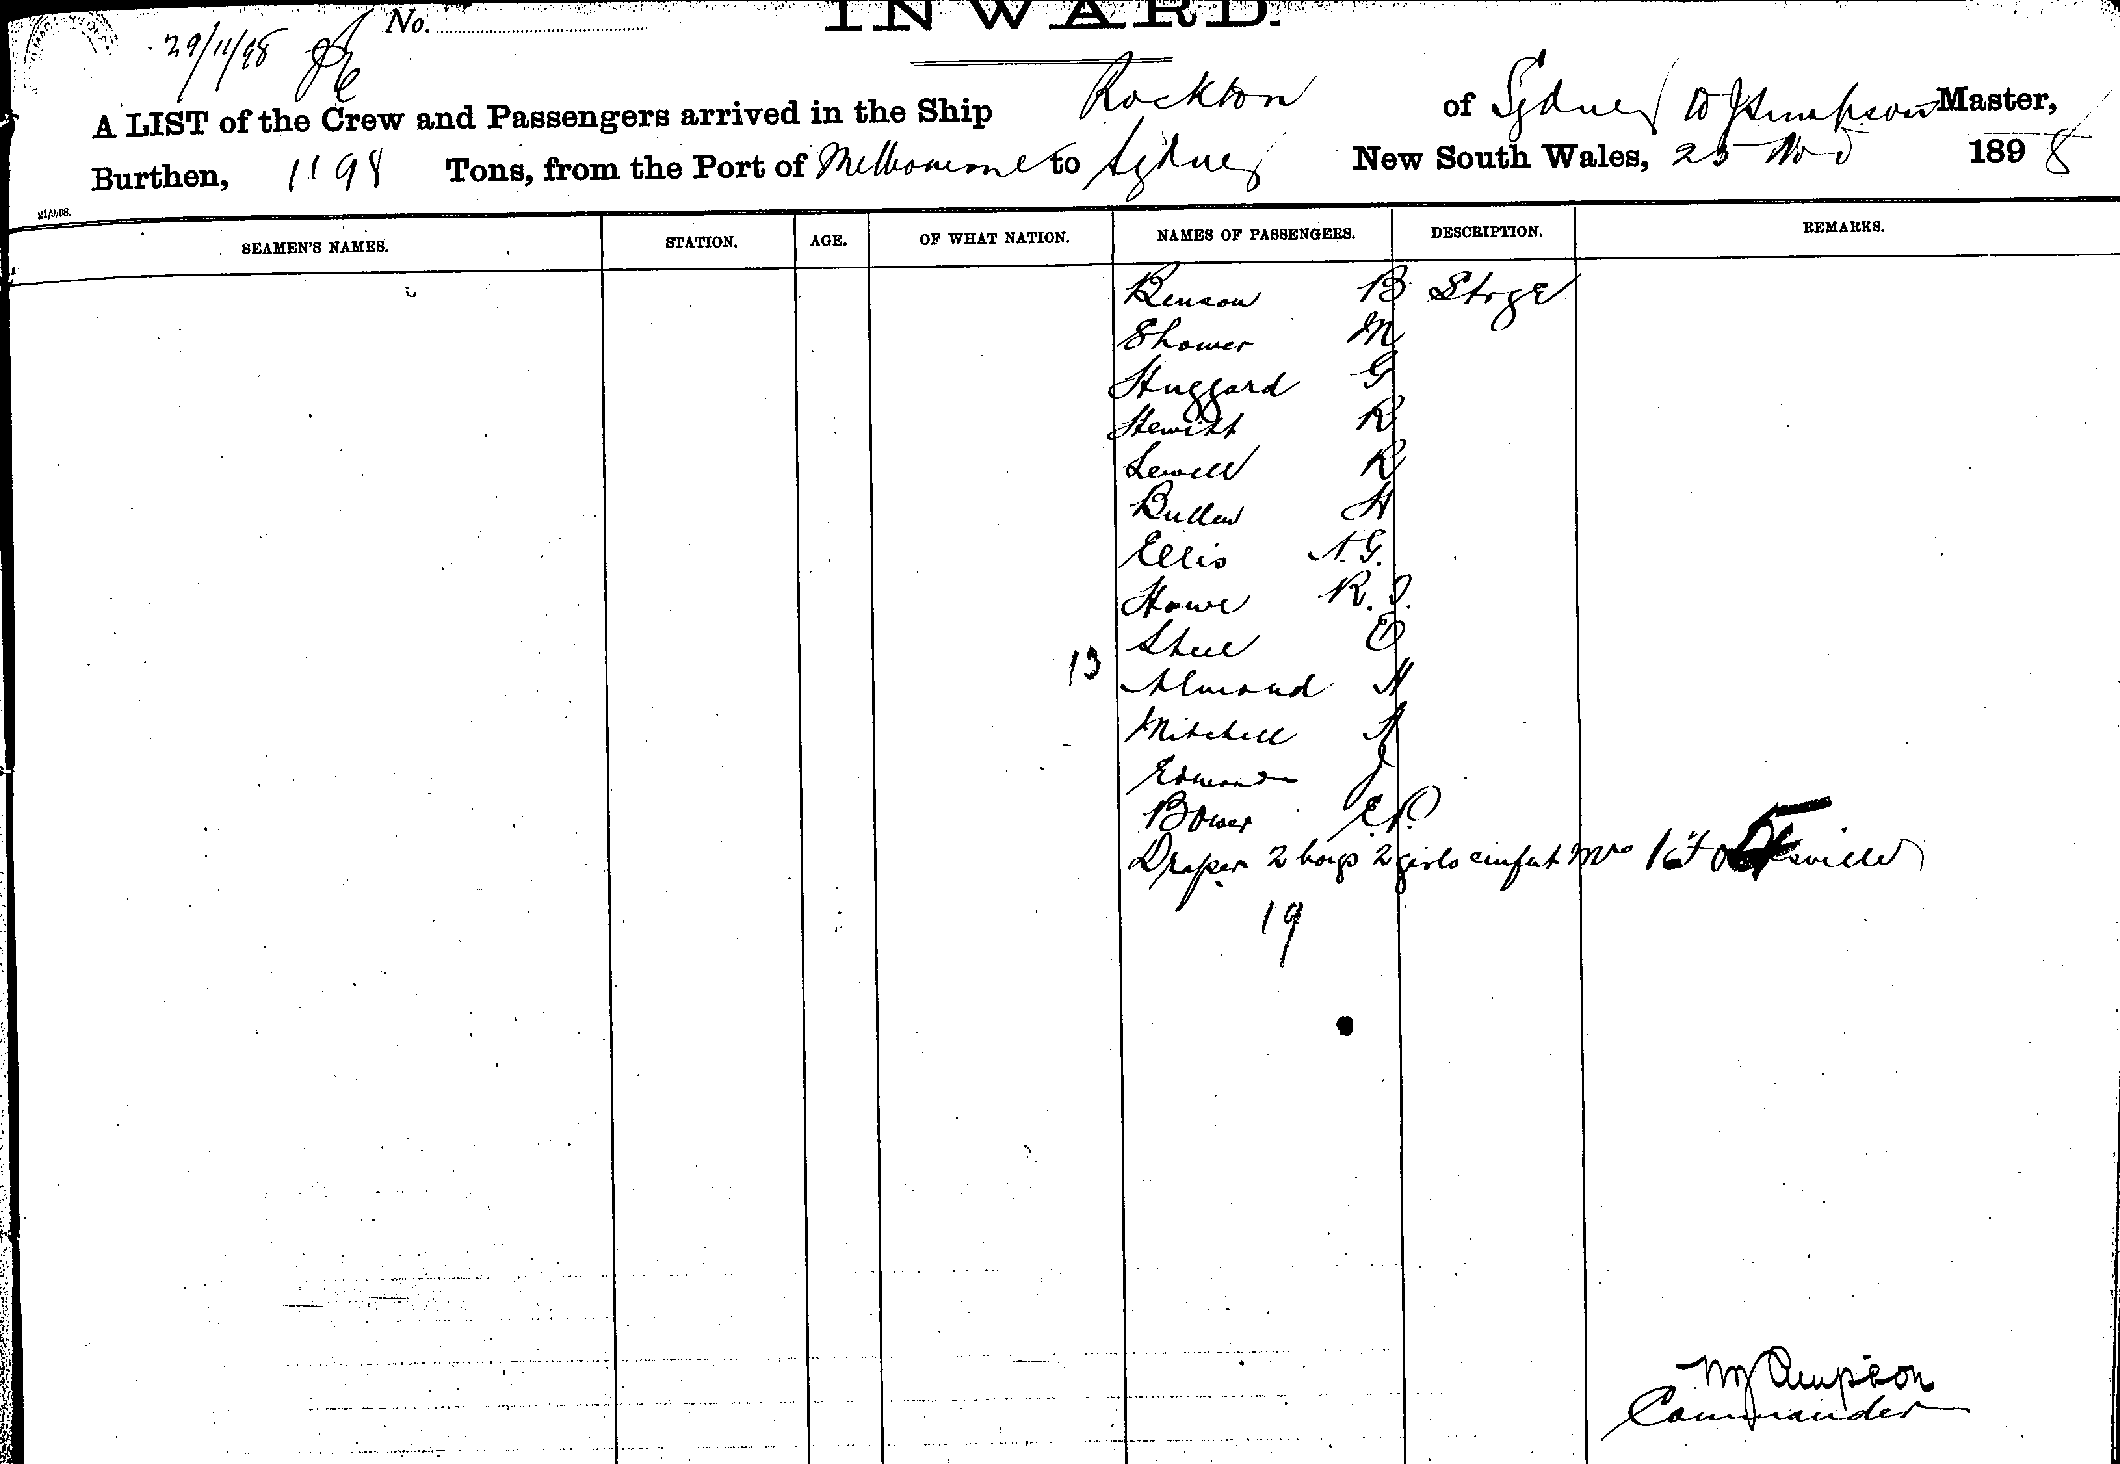 INWARD.
29/11/98 No.
A LIST of the Crew and Passengers arrived in the Ship Rockton of Sydney W J Simpson Master,
Burthen, 1198 Tons, from the Port of Melbourne to Sydney New South Wales, 25 Nov 1898
SEAMEN'S NAMES. STATION. AGE. OF WHAT NATION. NAMES OF PASSENGERS. DESCRIPTION. REMARKS.
Benson B Strge
Shower M
Huggard G
Hewitt R
Sewell R
Butler H
Ellis A.G.
Howe R.J.
Steel E
13
Almond H
Mitchell A
Edmonds J
Bower E.P.
Draper 2 boys 2 girls infant Mrs
19
W J Simpson
Commander